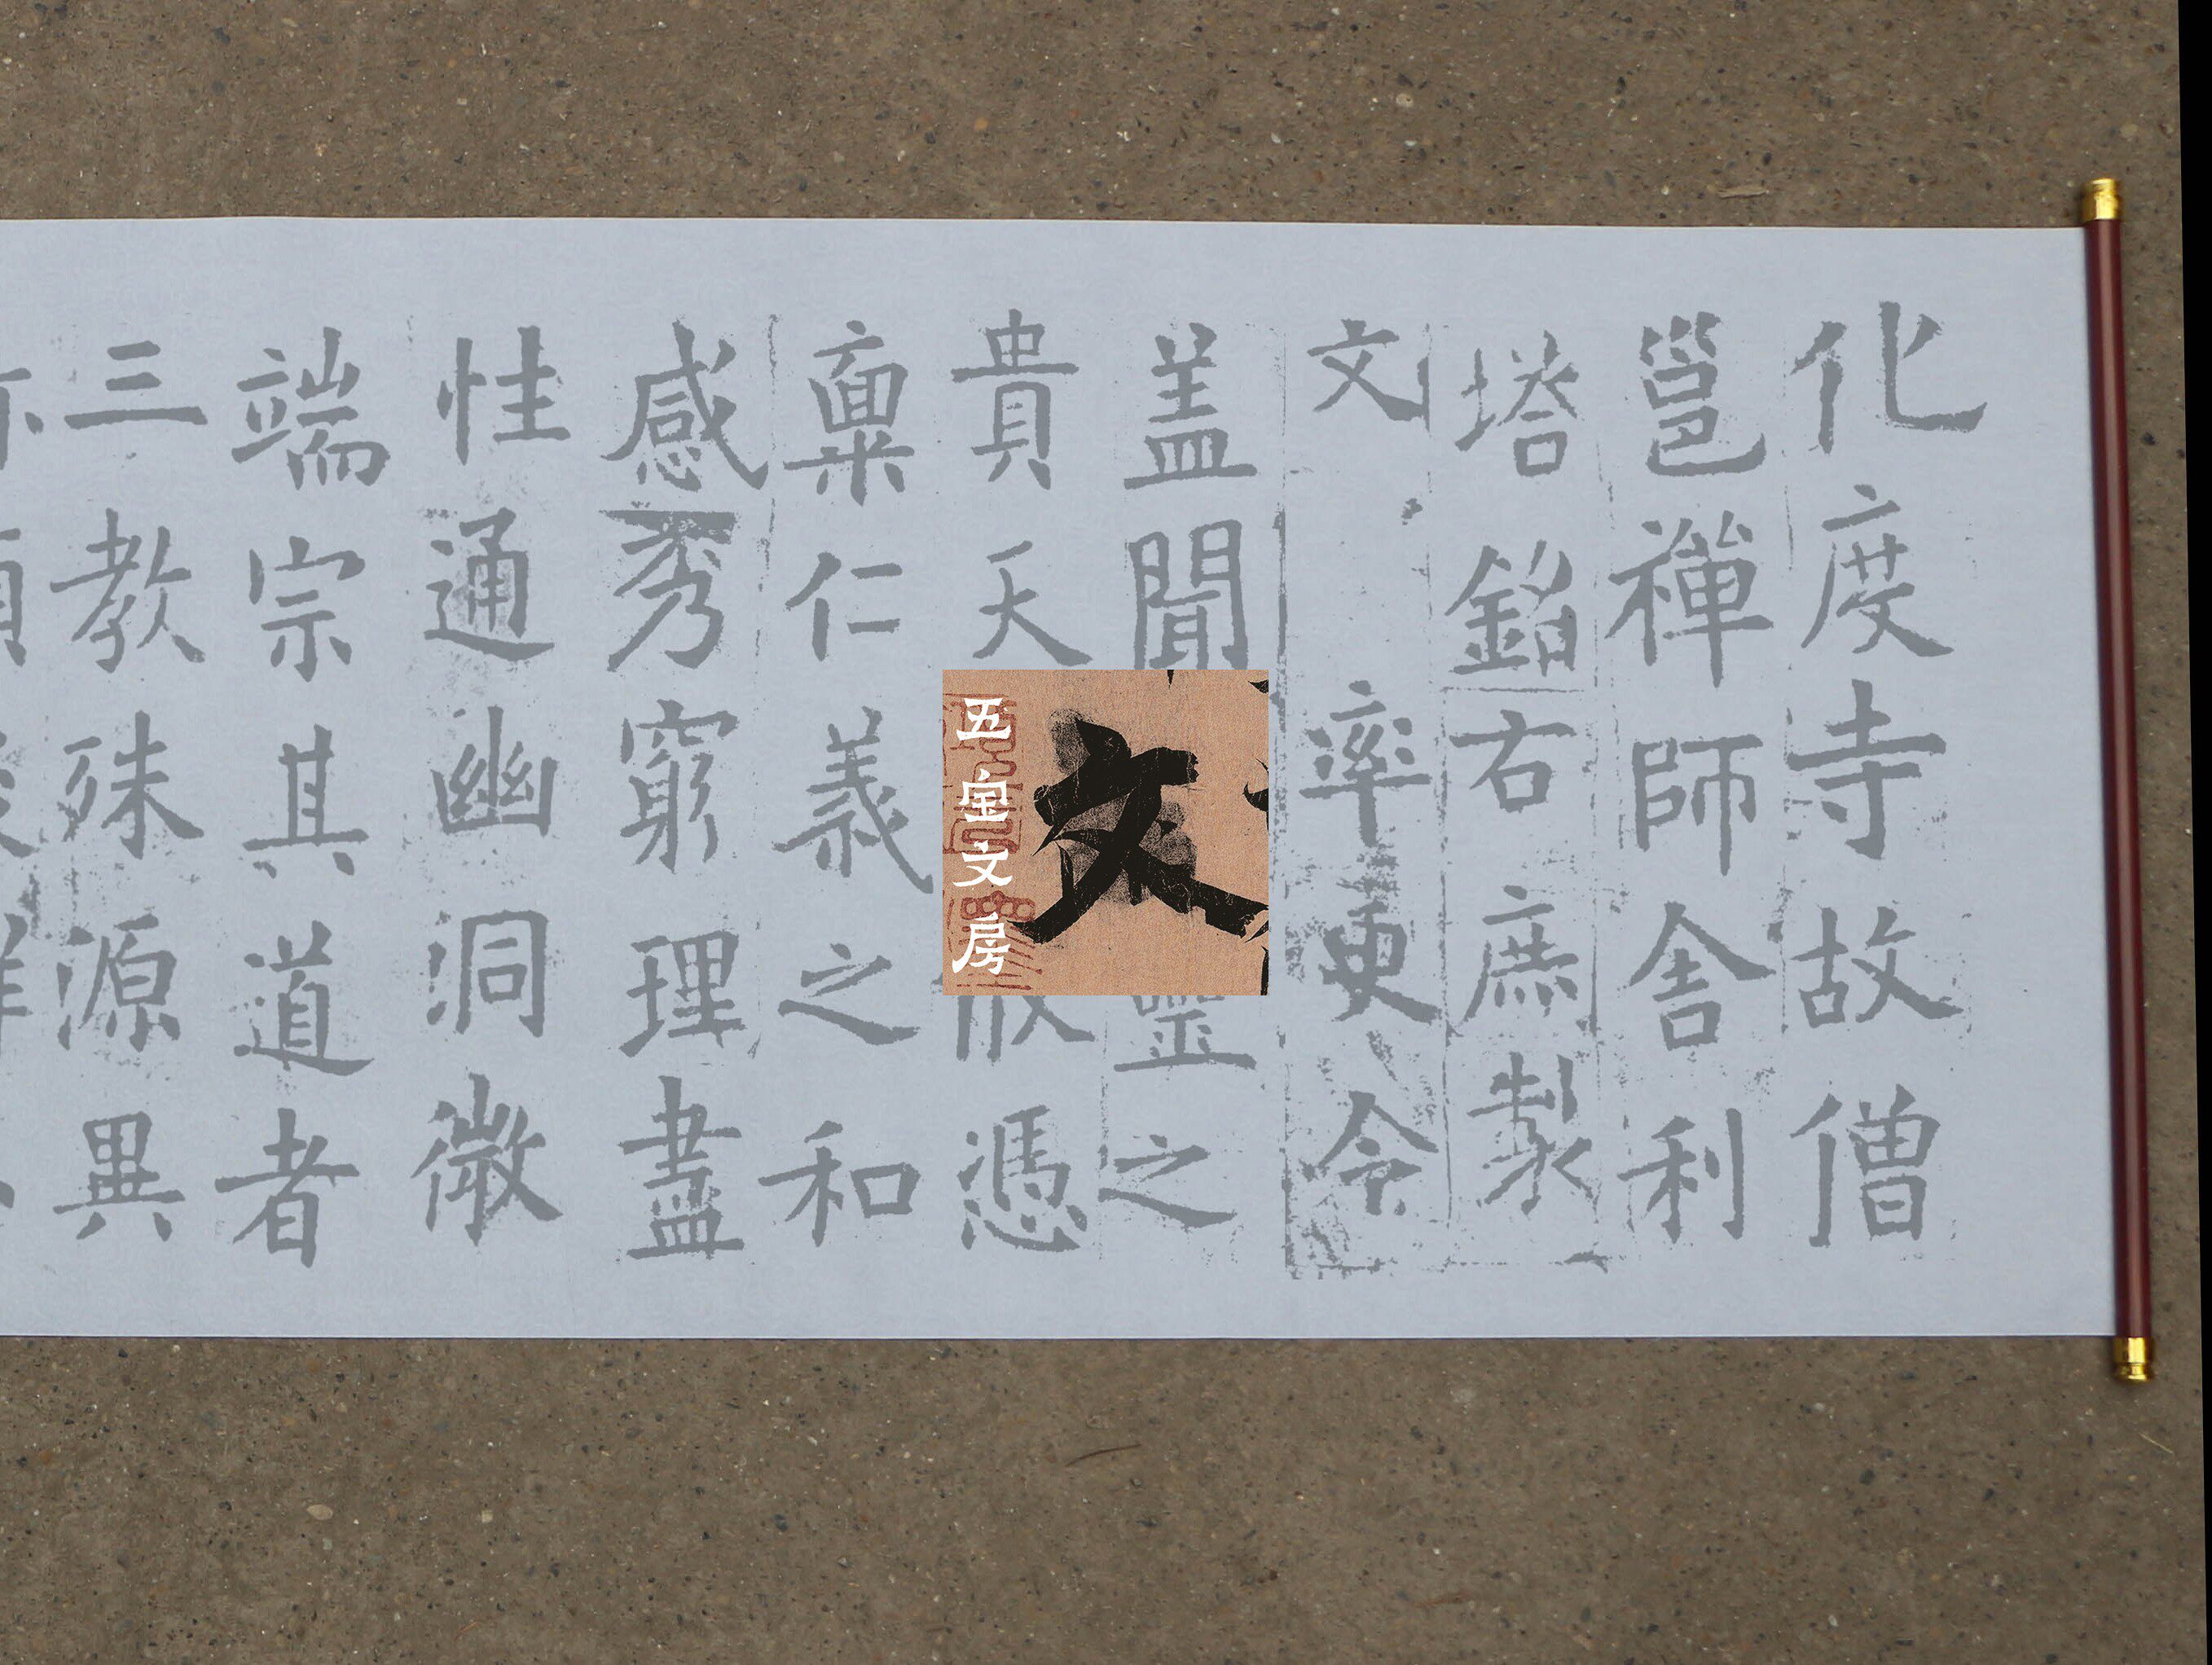 化度寺故僧
邕禪師舍利
塔銘右庶製
文率更令
盖聞靈之
貴天憑
稟仁義之和
感秀窮理盡
性通幽洞微
端宗其道者
三教殊源異
五宝文房
文